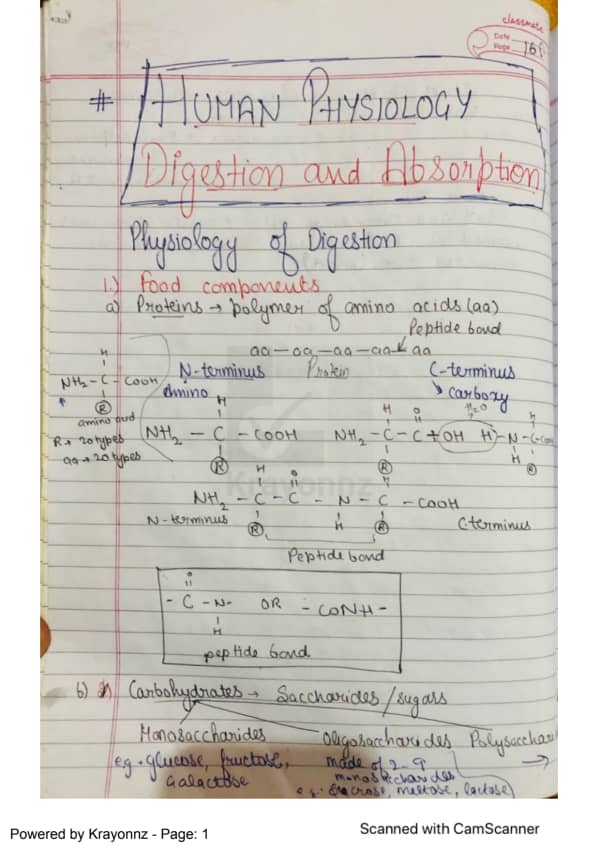 classmate
Date
Page 161
# HUMAN PHYSIOLOGY
Digestion and Absorption
Physiology of Digestion
1.) Food components
a) Proteins → polymer of amino acids (aa)
Peptide bond
aa — aa — aa — aa — aa
N-terminus Protein C-terminus
Amino carboxy
H
NH2 - C - COOH
R
amino acid
R → 20 types
aa → 20 types
H
NH2 - C - COOH
R
H O H2O H
NH2 - C - C + OH H - N - C - Coo
R H R
H O H
NH2 - C - C - N - C - COOH
R H R
N-terminus C terminus
Peptide bond
O
- C - N - OR - CONH -
H
peptide bond
b) Carbohydrates → Saccharides / sugars
Monosaccharides Oligosaccharides Polysacchar
eg. glucose, fructose, made of 2-9
Galactose monosaccharides
e.g. Sucrose, maltose, lactose)
Krayonnz
Powered by Krayonnz - Page: 1
Scanned with CamScanner